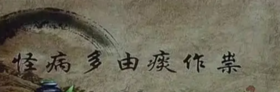 怪病多由痰作祟